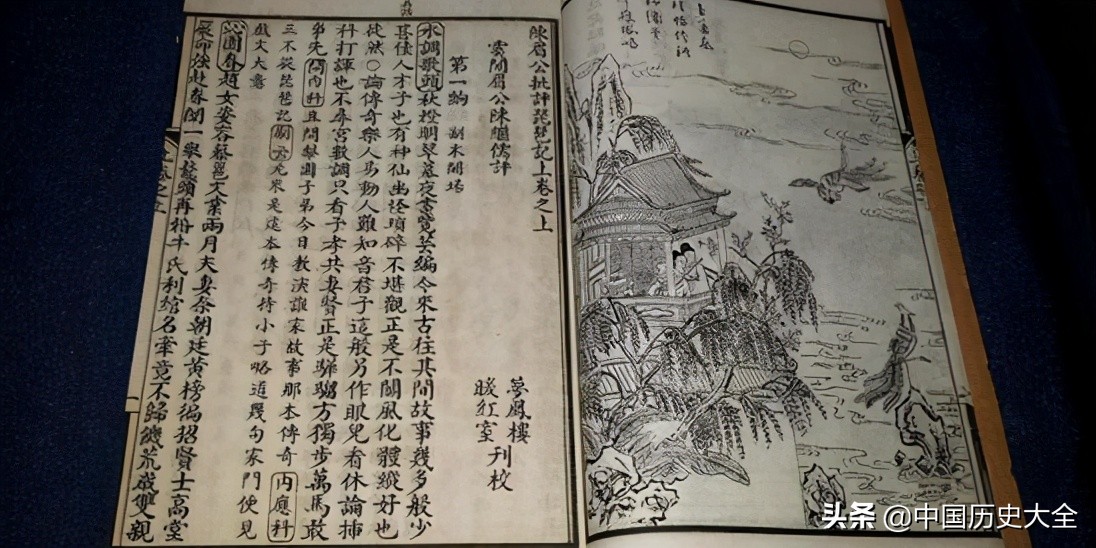 陳眉公批評琵琶記上卷之上
雲間眉公陳繼儒評
夢鳳樓
暖紅室
刊校
第一齣 副末開場
水調歌頭秋燈明翠幕夜案覽芸編今來古往其間故事幾多般少
甚佳人才子也有神仙幽怪瑣碎不堪觀正是不關風化體縱好也
徒然○論傳奇樂人易動人難知音君子這般另作眼兒看休論插
科打諢也不尋宮數調只看子孝共妻賢正是驊騮方獨步萬馬敢
爭先問內科且問子弟今日教演誰家故事那本傳奇內應科
三不從琵琶記副云元來是這本傳奇待小子略道幾句家門便見
戲文大意
沁園春趙女姿容蔡邕文業兩月夫妻奈朝廷黃榜徧招賢士高堂
嚴命強赴春闈一舉鰲頭再婚牛氏利綰名牽竟不歸饑荒歲雙親
头条 @中国历史大全